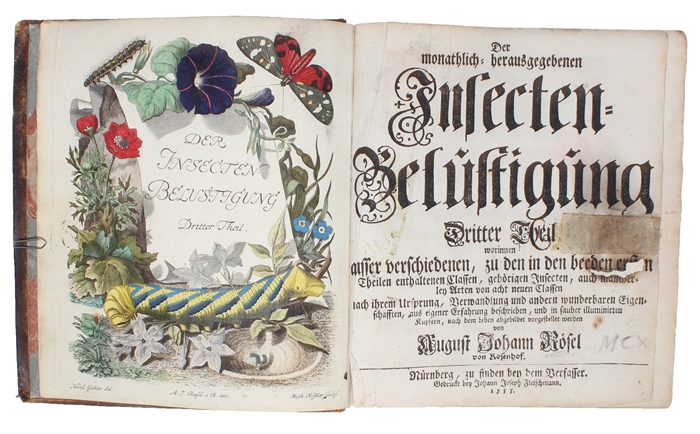 DER
INSECTEN
BELUSTIGUNG
Dritter Theil.
Der
monathlich-herausgegebenen
Insecten-
Belustigung
Dritter Theil
worinnen
ausser verschiedenen, zu den in den beeden ersten
Theilen enthaltenen Classen, gehörigen Insecten, auch mancher-
ley Arten von acht neuen Classen
nach ihrem Ursprung, Verwandlung und andern wunderbaren Eigen-
schafften, aus eigener Erfahrung beschrieben, und in sauber illuminirten
Kupfern, nach dem Leben abgebildet vorgestellet werden
von
August Johann Rösel
von Rosenhof.
MCX
Nürnberg, zu finden bey dem Verfasser.
Gedruckt bey Johann Joseph Fleischmann,
1755.